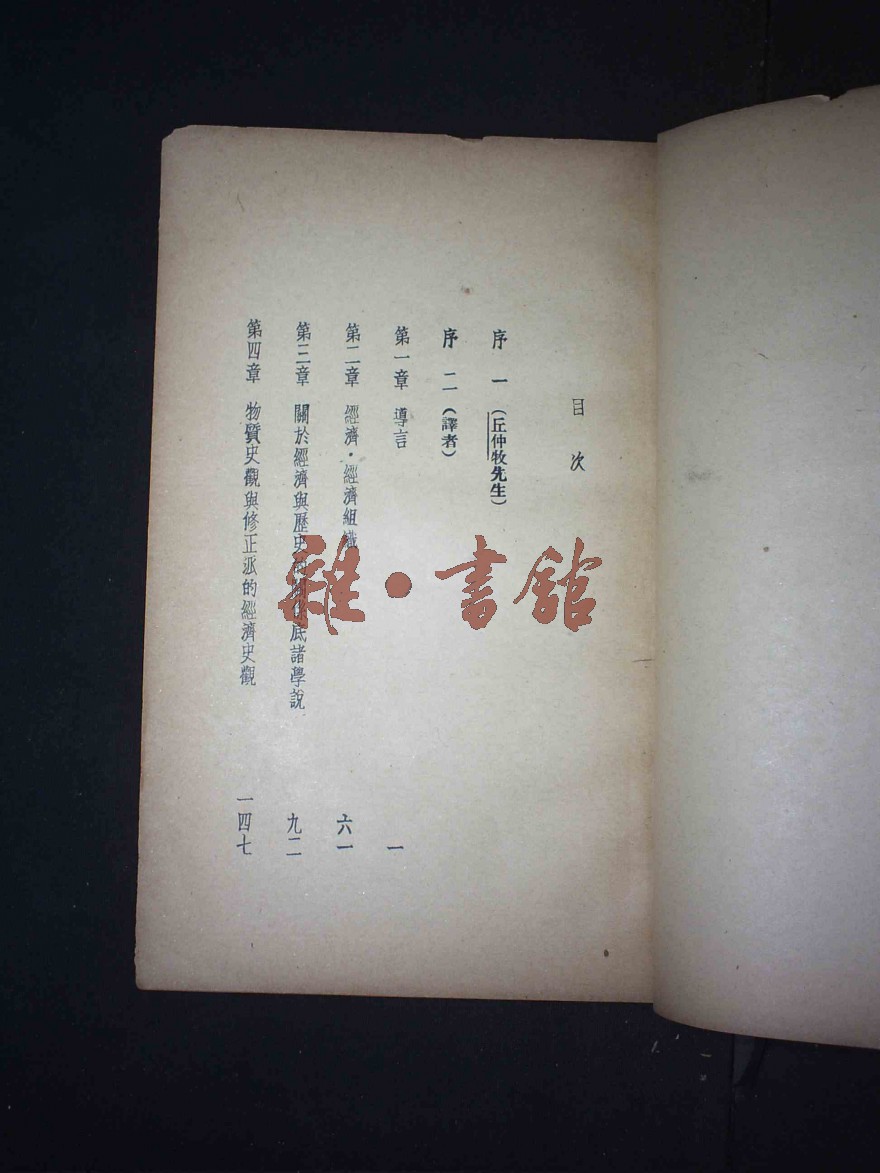 目次
序一（丘仲牧先生）
序二（譯者）
第一章 導言 一
第二章 經濟・經濟組織 六一
第三章 關於經濟與歷史的關係底諸學說 九二
第四章 物質史觀與修正派的經濟史觀 一四七
雜・書館